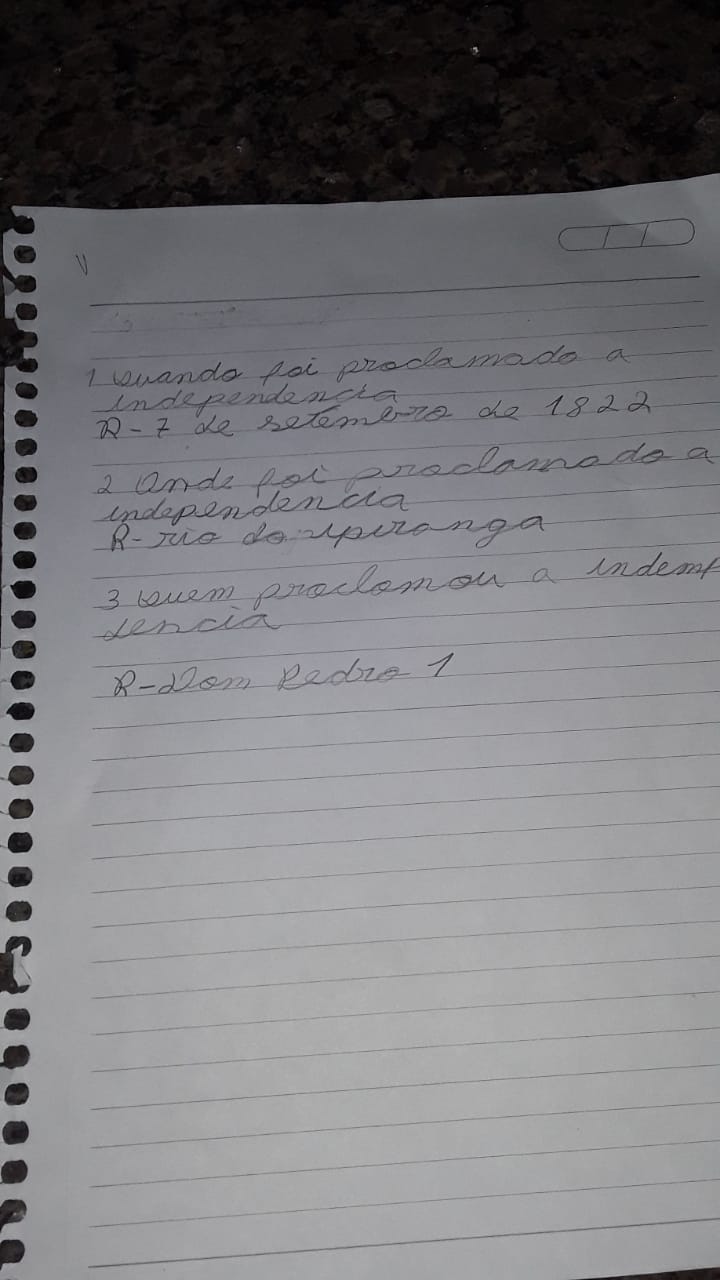 1 Quando foi proclamado a
independencia
R-7 de setembro de 1822
2 Onde foi proclamado a
independencia
R-rio do ipiranga
3 Quem proclamou a indemp
dencia
R-Dom Pedro 1